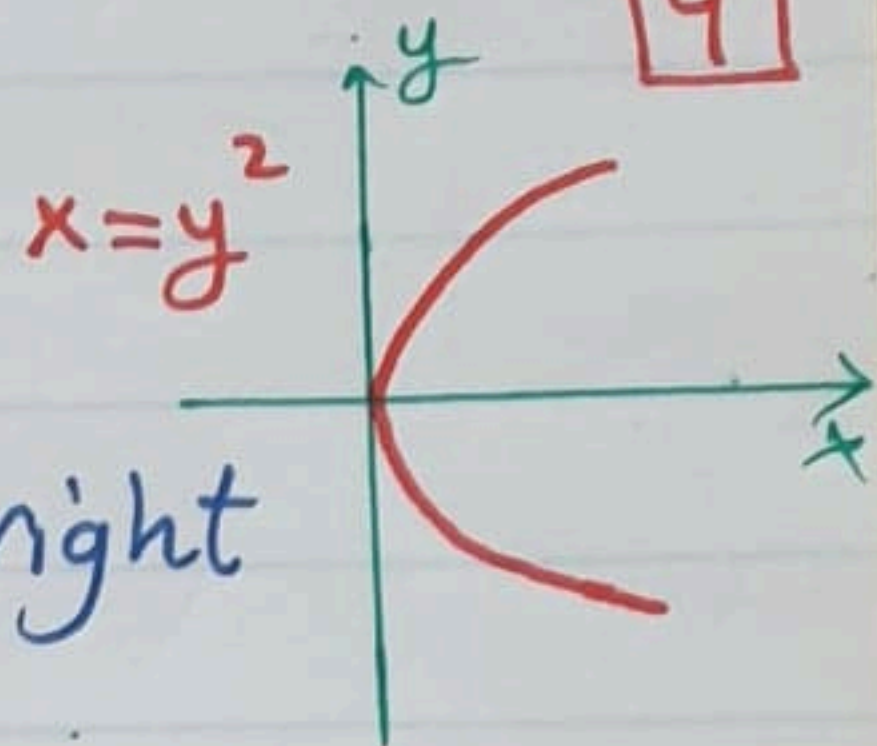 y
x=y²
x
right